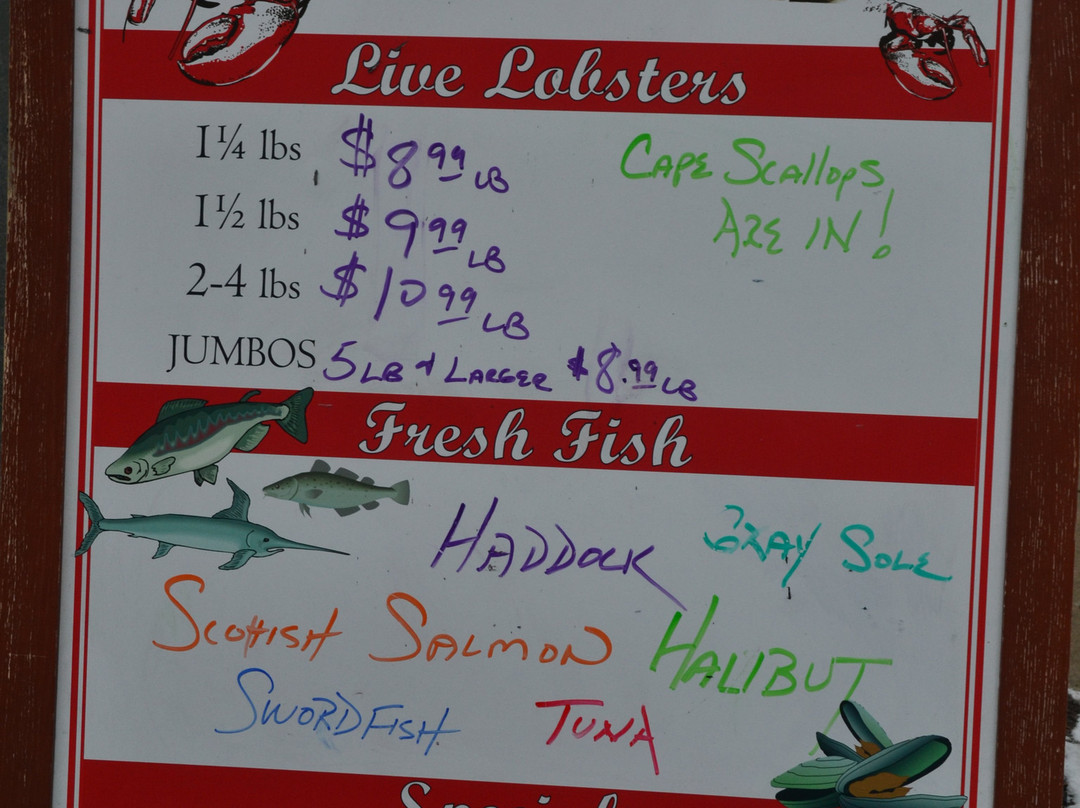 Live Lobsters
1¼ lbs $8.99 LB
CAPE SCALLOPS
ARE IN!
1½ lbs $9.99 LB
2-4 lbs $10.99 LB
JUMBOS 5 LB & LARGER $8.99 LB
Fresh Fish
HADDOCK GRAY SOLE
SCOTTISH SALMON HALIBUT
SWORDFISH TUNA